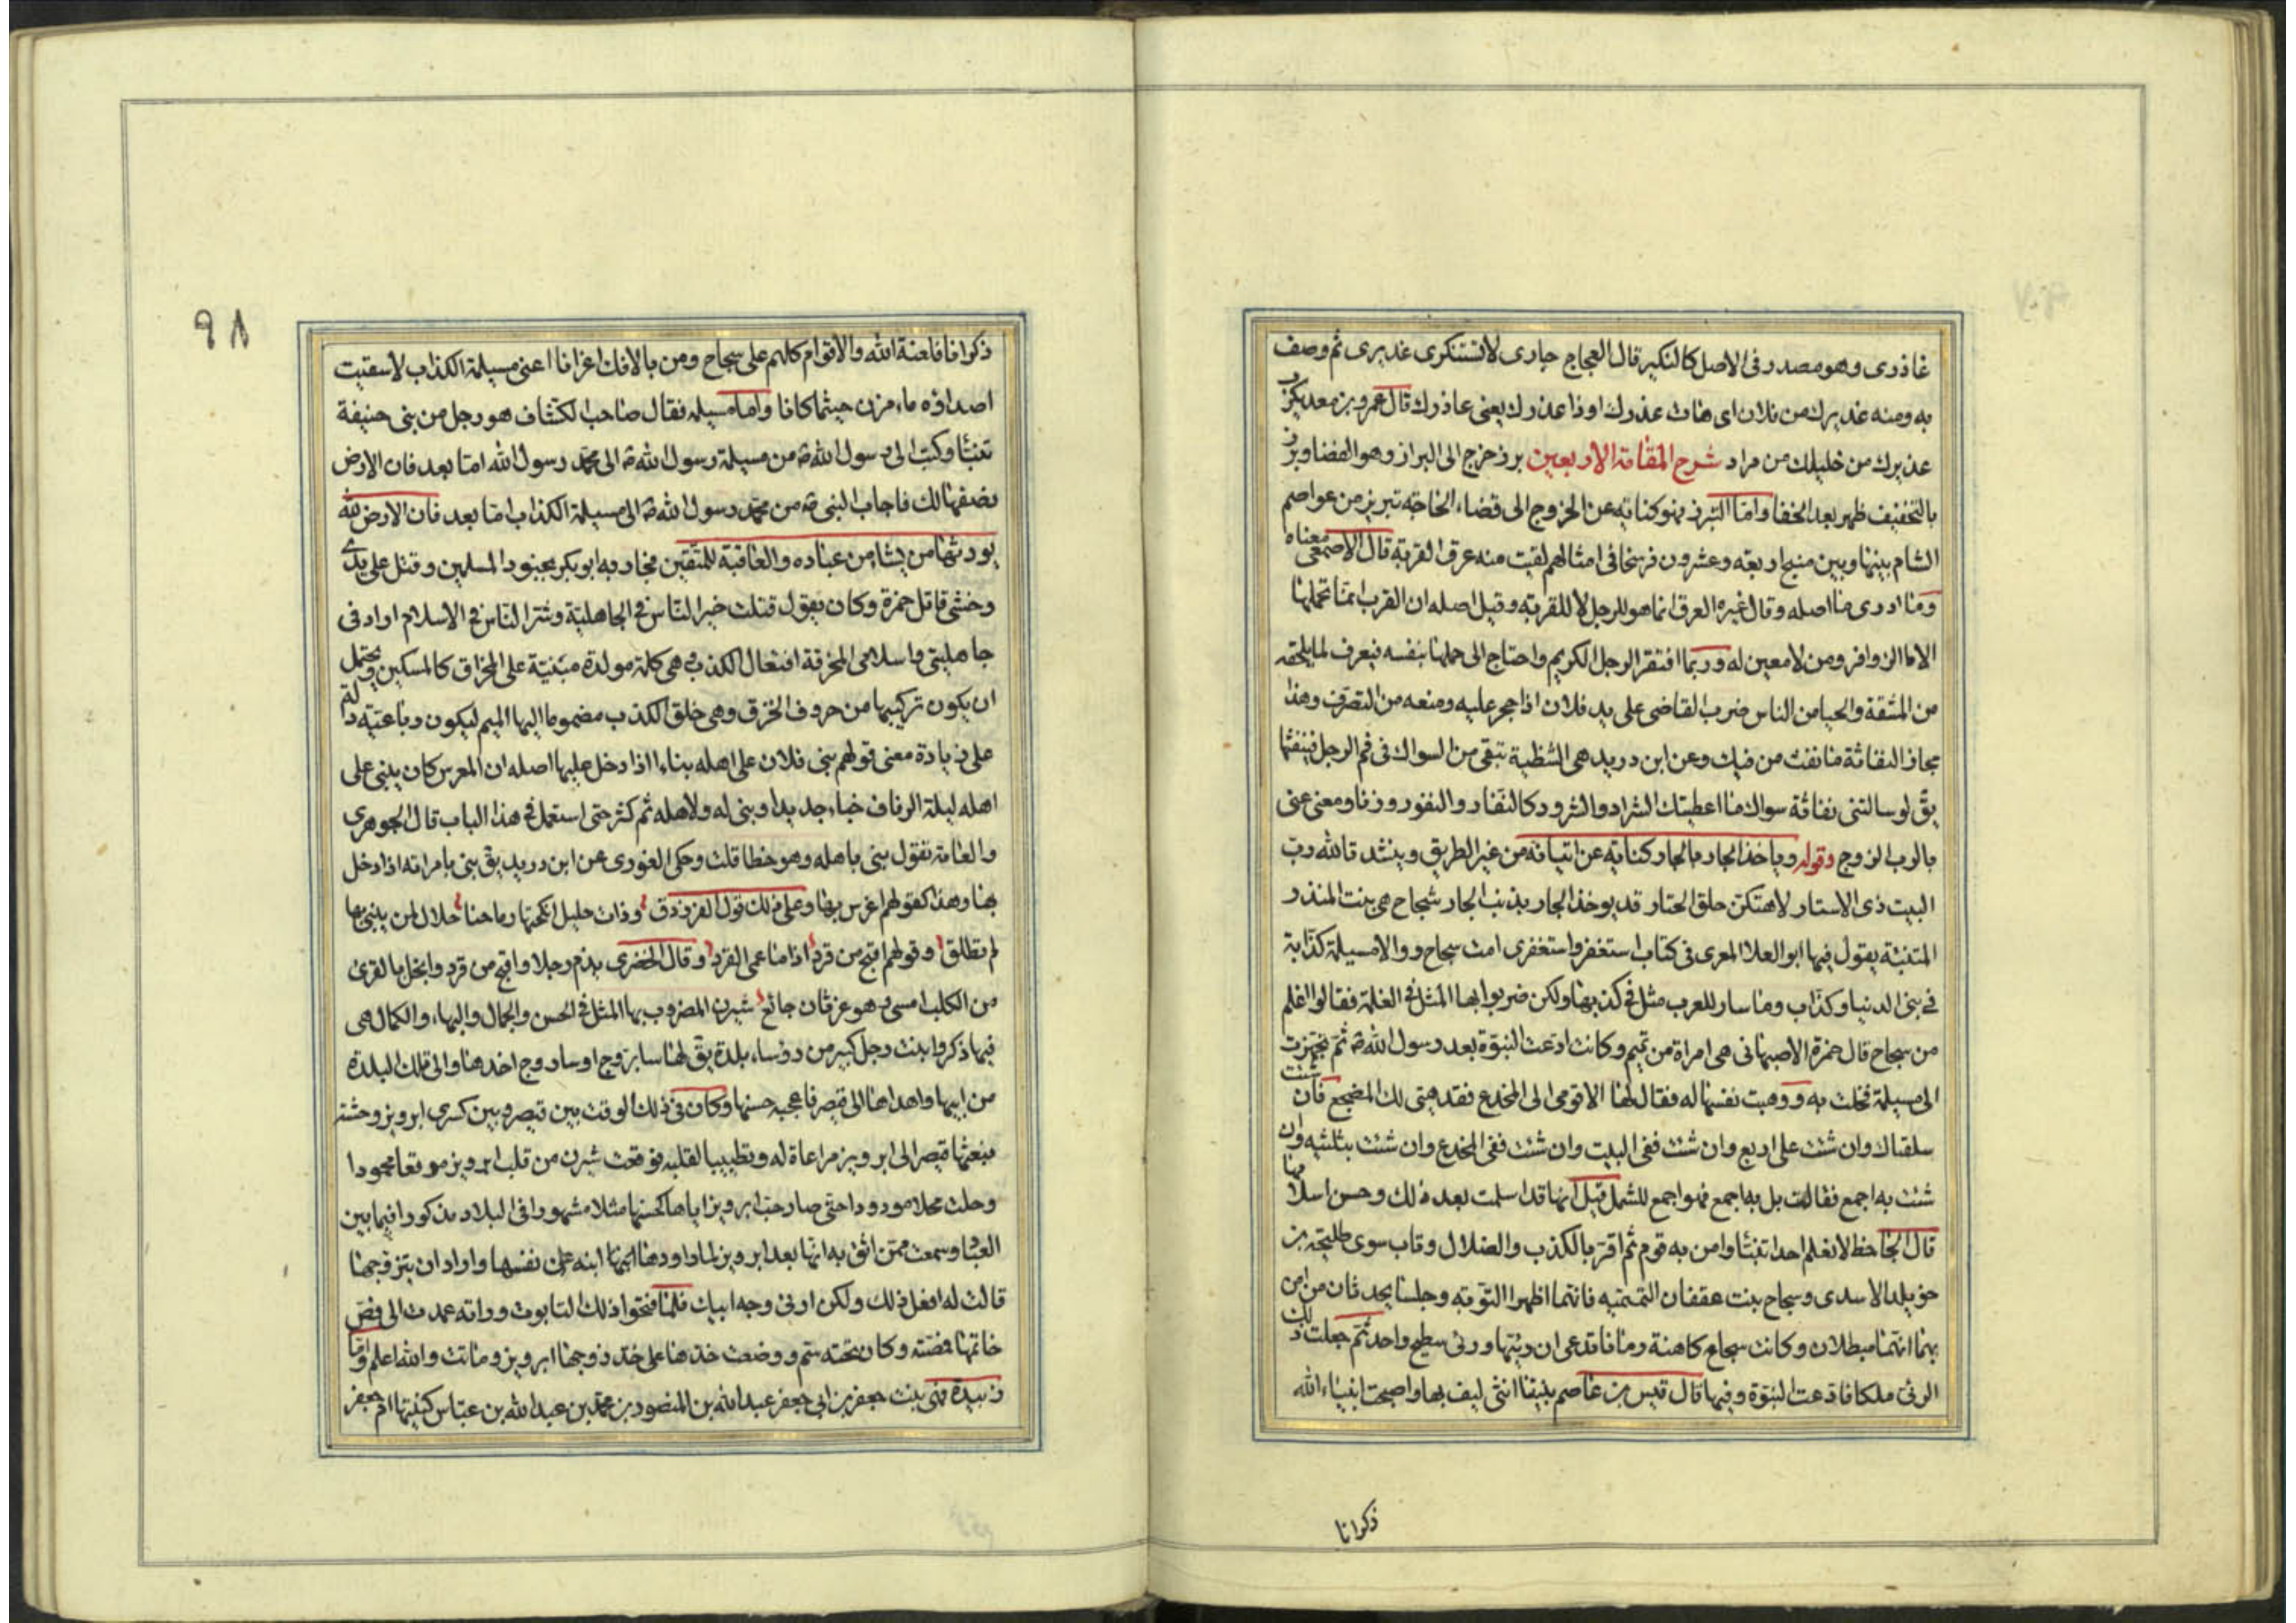 عاذرى وهو مصدر فى الاصل كالنكير قال العجاج جارى لا تستنكرى عذيرى ثم وصف
به ومنه عذيرك من فلان اى هات عذرك او ذا عذرك يعنى عاذرك قال عمرو بن معديكرب
عذيرك من خليلك من مراد شرح المقامة الاربعين برز خرج الى البراز وهو الفضا وبرز
بالتخفيف ظهر بعد الخفا واما التبرز فهو كناية عن الخروج الى قضاء الحاجة تبريز من عواصم
الشام بينها وبين منبج اربعة وعشرون فرسخا فى امثالهم لقيت منه عرق القربة قال الاصمعى معناه
وما ادرى ما اصله وقال غيره العرق انما هو للرجل لا للقربة وقيل اصله ان القرب انما تحملها
الاماء الزوافر ومن لا معين له وربما افتقر الرجل الكريم واحتاج الى حملها بنفسه فيعرق لما يلحقه
من المشقة والحيا من الناس ضرب القاضى على يد فلان اذا حجر عليه ومنعه من التصرف وهذا
مجاز النفاثة ما نفث من فيك وعن ابن دريد هى الشظية تبقى من السواك فى فم الرجل فينفثها
يق لو سالتنى نفاثة سواك ما اعطيتك الشراد والشرود كالنفار والنفور وزنا ومعنى عنى
بالرب الزوج وقوله وياخذ الجار بالجار كناية عن اتيانه من غير الطريق وينشد تالله رب
البيت ذى الاستار لاهتكن حلق الحتار قد يوخذ الجار بذنب الجار سجاح هى بنت المنذر
المتنبئة يقول فيها ابو العلا المعرى فى كتاب استغفر واستغفرى امت سجاح ووالا مسيلمة كذابة
فى بنى الدنيا وكذاب وما سار للعرب مثل فى كذبها ولكن ضربوا بها المثل فى الغلمة فقالوا اغلم
من سجاح قال حمزة الاصبهانى هى امراة من تميم وكانت ادعت النبوة بعد رسول الله ص ثم تجهزت
الى مسيلمة فخلت به ووهبت نفسها له فقال لها الا قومى الى المخدع فقد هيى لك المضجع فان شئت
سلقناك وان شئت على اربع وان شئت ففى البيت وان شئت ففى المخدع وان شئت بثلثيه وان
شئت به اجمع فقالت بل به اجمع فهو اجمع للشمل قيل انها قد اسلمت بعد ذلك وحسن اسلامها
قال الجاحظ لا نعلم احدا تنبا وامن به قوم ثم اقر بالكذب والضلال وتاب سوى طليحة بن
خويلد الاسدى وسجاح بنت عقفان التميمية فانهما اظهرا التوبة وجلسا يحدثان من امن
بهما انهما مبطلان وكانت سجاح كاهنة وما فاتدعى ان رئيها ورئى سطيح واحد ثم جعلت ذلك
الرئى ملكا فادعت النبوة وفيها قال قيس بن عاصم نبيتنا انثى نطيف بها واصبحت انبياء الله
ذكرانا
ذكرانا فلعنة الله والاقوام كلهم على سجاح ومن بالافك اغرانا اعنى مسيلمة الكذاب لا سقيت
اصداؤه ماء مزن حيثما كانا واما مسيلمة فقال صاحب الكشاف هو رجل من بنى حنيفة
تنبا وكتب الى رسول الله ص من مسيلمة رسول الله ص الى محمد رسول الله اما بعد فان الارض
نصفها لك فاجاب النبى ص من محمد رسول الله ص الى مسيلمة الكذاب اما بعد فان الارض لله
يورثها من يشاء من عباده والعاقبة للمتقين فحاربه ابو بكر بجنود المسلمين وقتل على يدى
وحشى قاتل حمزة وكان يقول قتلت خير الناس فى الجاهلية وشر الناس فى الاسلام اراد فى
جاهليتى واسلامى المخرقة افتعال الكذب وهى كلمة مولدة مبنية على المخراق كالمسكين ويحتمل
ان يكون تركيبها من حروف الخرق وهى خلق الكذب مضموما اليها الميم ليكون رباعية دالة
على زيادة معنى قولهم بنى فلان على اهله بناء اذا دخل عليها اصله ان المعرس كان يبنى على
اهله ليلة الزفاف خباء جديدا وبنى له ولاهله ثم كثر حتى استعمل فى هذا الباب قال الجوهرى
والعامة تقول بنى باهله وهو خطا قلت وحكى الغورى عن ابن دريد يق بنى بامراته اذا دخل
بها وهذا كقولهم اعرس بها وعلى ذلك قول الفرزدق وذات حليل انكحتها رماحنا حلال لمن يبنى بها
لم تطلق وقولهم اقبح من قرد اذا ما عمى القرد وقال الخضرى يذم رجلا واقبح من قرد وابخل بالقرى
من الكلب امسى وهو غرثان جائع شيرين المضروب بها المثل فى الحسن والجمال والبهاء والكمال هى
فيما ذكروا بنت رجل كبير من رؤساء بلدة يق لها سابزوج او ساروج اخذها والى تلك البلدة
من ابيها واهداها الى قيصر فاعجبه حسنها وكان فى ذلك الوقت بين قيصر وبين كسرى ابرويز وحشة
فبعثها قيصر الى ابرويز مراعاة له وتطييبا لقلبه فوقعت شيرين من قلب ابرويز موقعا محمودا
وحلت محلا مودودا حتى صار حب ابرويز اياها كحسنها مثلا مشهورا فى البلاد مذكورا فيما بين
العباد وسمعت ممن اثق به انها بعد ابرويز لما راودها ابنه على نفسها واراد ان يتزوجها
قالت له افعل ذلك ولكن ارنى وجه ابيك فلما فتحوا ذلك التابوت وراته عمدت الى فص
خاتمها فمصته وكان تحته سم ووضعت خدها على خد زوجها ابرويز وماتت والله اعلم واما
زبيدة فهى بنت جعفر بن ابى جعفر عبد الله بن المنصور بن محمد بن عبد الله بن عباس كنيتها ام جعفر
٩٨